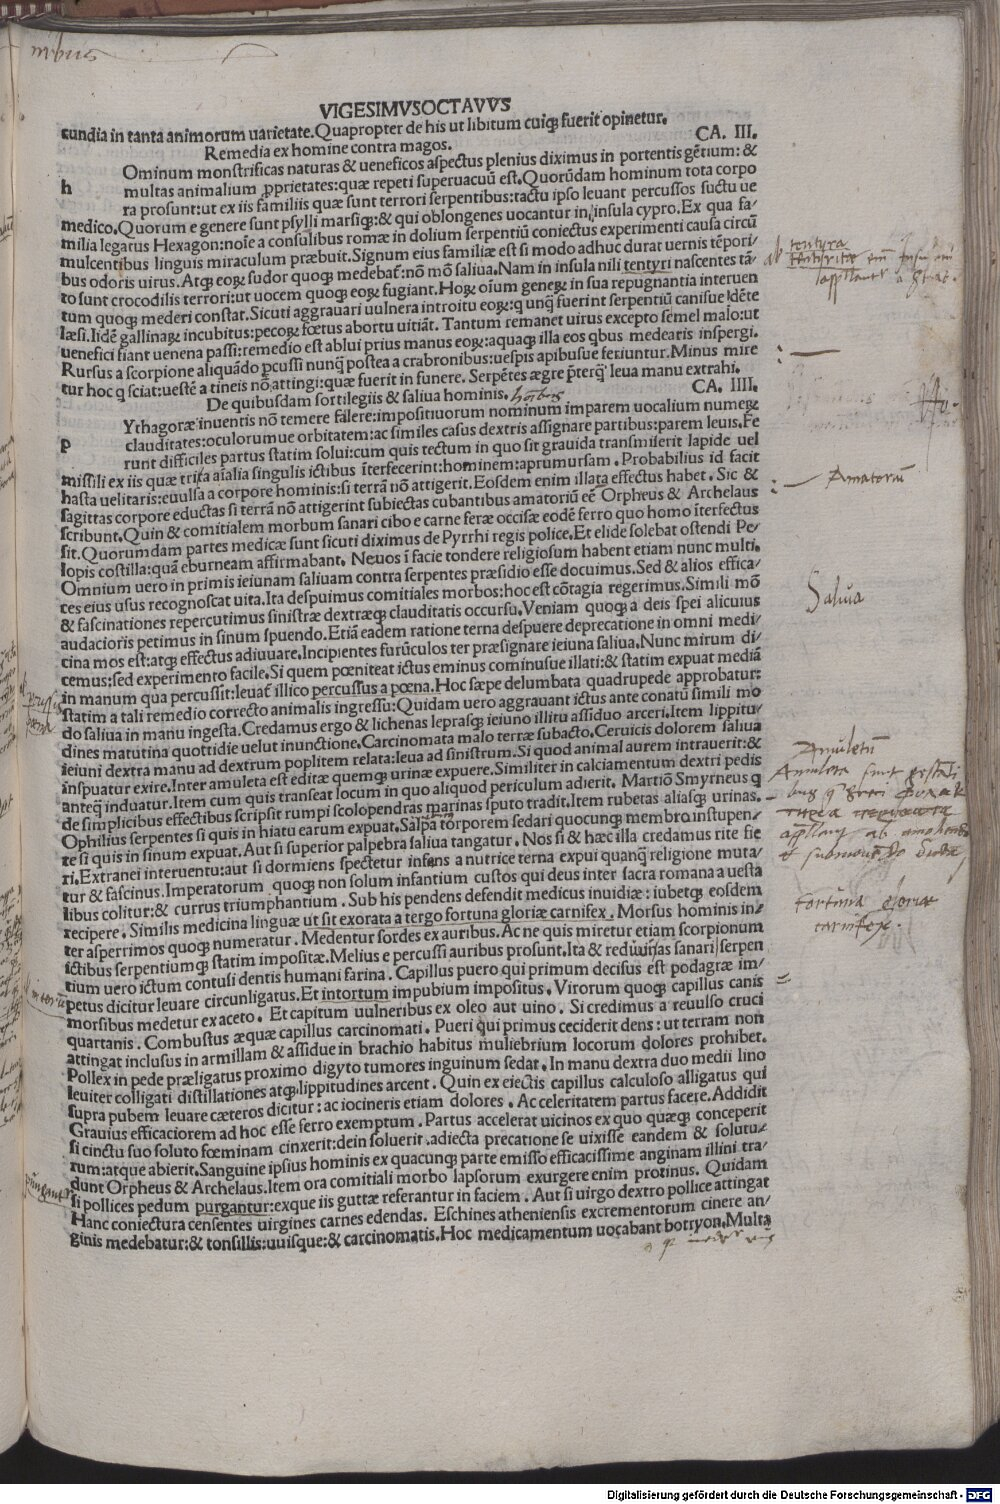 VIGESIMVSOCTAVVS
cundia in tanta animorum uarietate.Quapropter de his ut libitum cuiqȝ fuerit opinetur.
Remedia ex homine contra magos. CA. III.
Ominum monstrificas naturas & ueneficos aspectus plenius diximus in portentis gẽtium: &
h multas animalium ꝓprietates:quæ repeti superuacuũ est.Quorũdam hominum tota corpo
ra prosunt:ut ex iis familiis quæ sunt terrori serpentibus:tactu ipso leuant percussos suctu ue
medico.Quorum e genere sunt psylli marsiqȝ:& qui oblongenes uocantur in insula cypro.Ex qua fa/
milia legatus Hexagon:noĩe a consulibus romæ in dolium serpentiũ coniectus experimenti causa circũ
mulcentibus linguis miraculum præbuit.Signum eius familiæ est si modo adhuc durat uernis tẽpori/
bus odoris uirus.Atqȝ eoꝝ sudor quoqȝ medebat̃:nõ mõ saliua.Nam in insula nili tentyri nascentes tã/
to sunt crocodilis terrori:ut uocem quoqȝ eoꝝ fugiant.Hoꝝ oĩum geneꝝ in sua repugnantia interuen
tum quoqȝ mederi constat.Sicuti aggrauari uulnera introitu eoꝝ:q unq̃ fuerint serpentiũ canisue ldẽte
læsi.Iidẽ gallinaꝝ incubitus:pecoꝝ fœtus abortu uitiãt. Tantum remanet uirus excepto semel malo:ut
uenefici fiant uenena passi:remedio est ablui prius manus eoꝝ:aquaqȝ illa eos qbus medearis inspergi.
Rursus a scorpione aliquãdo pcussi nunq̃ postea a crabronibus:uespis apibusue feriuntur.Minus mire
tur hoc q sciat:uestẽ a tineis nõ attingi:quæ fuerit in funere. Serpẽtes ægre p̃terq̃ leua manu extrahi.
De quibusdam sortilegiis & saliua hominis. CA. IIII.
Yrhagoræ inuentis nõ temere falere:impositiuorum nominum imparem uocalium numeꝝ
p clauditates:oculorumue orbitatem:ac similes casus dextris assignare partibus:parem leuis.Fe
runt difficiles partus statim solui:cum quis tectum in quo sit grauida transmiserit lapide uel
missili ex iis quæ tria aĩalia singulis ictibus ĩterfecerint:hominem:aprumursam. Probabilius id facit
hasta uelitaris:euulsa a corpore hominis:si terrã nõ attigerit.Eosdem enim illata effectus habet. Sic &
sagittas corpore eductas si terrã nõ attigerint subiectas cubantibus amatoriũ eẽ Orpheus & Archelaus
scribunt.Quin & comitialem morbum sanari cibo e carne feræ occisæ eodẽ ferro quo homo ĩterfectus
sit.Quorumdam partes medicæ sunt sicuti diximus de Pyrrhi regis police.Et elide solebat ostendi Pe/
lopis costilla:quã eburneam affirmabant. Neuos ĩ facie tondere religiosum habent etiam nunc multi.
Omnium uero in primis ieiunam saliuam contra serpentes præsidio esse docuimus.Sed & alios effica/
ces eius usus recognoscat uita.Ita despuimus comitiales morbos:hoc est cõtagia regerimus.Simili mõ
& fascinationes repercutimus sinistræ dextræqȝ clauditatis occursu.Veniam quoqȝ a deis spei alicuius
audacioris petimus in sinum spuendo.Etiã eadem ratione terna despuere deprecatione in omni medi/
cina mos est:atqȝ effectus adiuuare.Incipientes furũculos ter præsignare ieiuna saliua.Nunc mirum di/
cemus:sed experimento facile.Si quem pœniteat ictus eminus cominusue illati:& statim expuat mediã
in manum qua percussit:leuat̃ illico percussus a pœna.Hoc sæpe delumbata quadrupede approbatur:
statim a tali remedio correcto animalis ingressu:Quidam uero aggrauant ictus ante conatũ simili mo
do saliua in manu ingesta.Credamus ergo & lichenas leprasqȝ ieiuno illitu assiduo arceri.Item lippitu/
dines matutina quottidie uelut inunctione.Carcinomata malo terræ subacto.Ceruicis dolorem saliua
ieiuni dextra manu ad dextrum poplitem relata:leua ad sinistrum.Si quod animal aurem intrauerit:&
inspuatur exire.Inter amuleta est editæ quemqȝ urinæ expuere.Similiter in calciamentum dextri pedis
anteq̃ induatur.Item cum quis transeat locum in quo aliquod periculum adierit. Martiõ Smyrneus q
de simplicibus effectibus scripsit rumpi scolopendras marinas sputo tradit.Item rubetas aliasqȝ urinas.
Ophilius serpentes si quis in hiatu earum expuat.Salpã torporem sedari quocunqȝ membro instupen/
te si quis in sinum expuat.Aut si superior palpebra saliua tangatur. Nos si & hæc illa credamus rite fie
ri.Extranei interuentu:aut si dormiens spectetur infans a nutrice terna expui quanq̃ religione muta/
tur & fascinus.Imperatorum quoqȝ non solum infantium custos qui deus inter sacra romana a uesta
libus colitur:& currus triumphantium. Sub his pendens defendit medicus inuidiæ: iubetqȝ eosdem
recipere. Similis medicina linguæ ut sit exorata a tergo fortuna gloriæ carnifex. Morsus hominis in/
ter asperrimos quoqȝ numeratur. Medentur sordes ex auribus.Ac ne quis miretur etiam scorpionum
ictibus serpentiumqȝ statim impositæ.Melius e percussi auribus prosunt.Ita & reduuias sanari serpen
tium uero ictum contusi dentis humani farina. Capillus puero qui primum decisus est podagræ im/
petus dicitur leuare circunligatus.Et intortum impubium impositus. Virorum quoqȝ capillus canis
morsibus medetur ex aceto. Et capitum uulneribus ex oleo aut uino. Si credimus a reuulso cruci
quartanis. Combustus æquæ capillus carcinomati. Pueri qui primus ceciderit dens: ut terram non
attingat inclusus in armillam & assidue in brachio habitus muliebrium locorum dolores prohibet.
Pollex in pede præligatus proximo digyto tumores inguinum sedat. In manu dextra duo medii lino
leuiter colligati distillationes atqȝ lippitudines arcent. Quin ex eiectis capillus calculoso alligatus qui
supra pubem leuare cæteros dicitur: ac iocineris etiam dolores. Ac celeritatem partus facere. Addidit
Grauius efficaciorem ad hoc esse ferro exemptum. Partus accelerat uicinos ex quo quæqȝ conceperit
si cinctu suo soluto fœminam cinxerit:dein soluerit adiecta precatione se uixisse eandem & solutu/
rum:atque abierit.Sanguine ipsius hominis ex quacunqȝ parte emisso efficacissime anginam illini tra/
dunt Orpheus & Archelaus.Item ora comitiali morbo lapsorum exurgere enim protinus. Quidam
si pollices pedum purgantur:exque iis guttæ referantur in faciem. Aut si uirgo dextro pollice attingat
Hanc coniectura censentes uirgines carnes edendas. Eschines atheniensis excrementorum cinere an/
ginis medebatur:& tonsillis:uuisque:& carcinomatis.Hoc medicamentum uocabant botryon.Multa
tentyra
Amatoriũ
Saliua
Amuletũ
Amuleta sunt
fortuna gloriæ
carnifex.
Digitalisierung gefördert durch die Deutsche Forschungsgemeinschaft - DFG